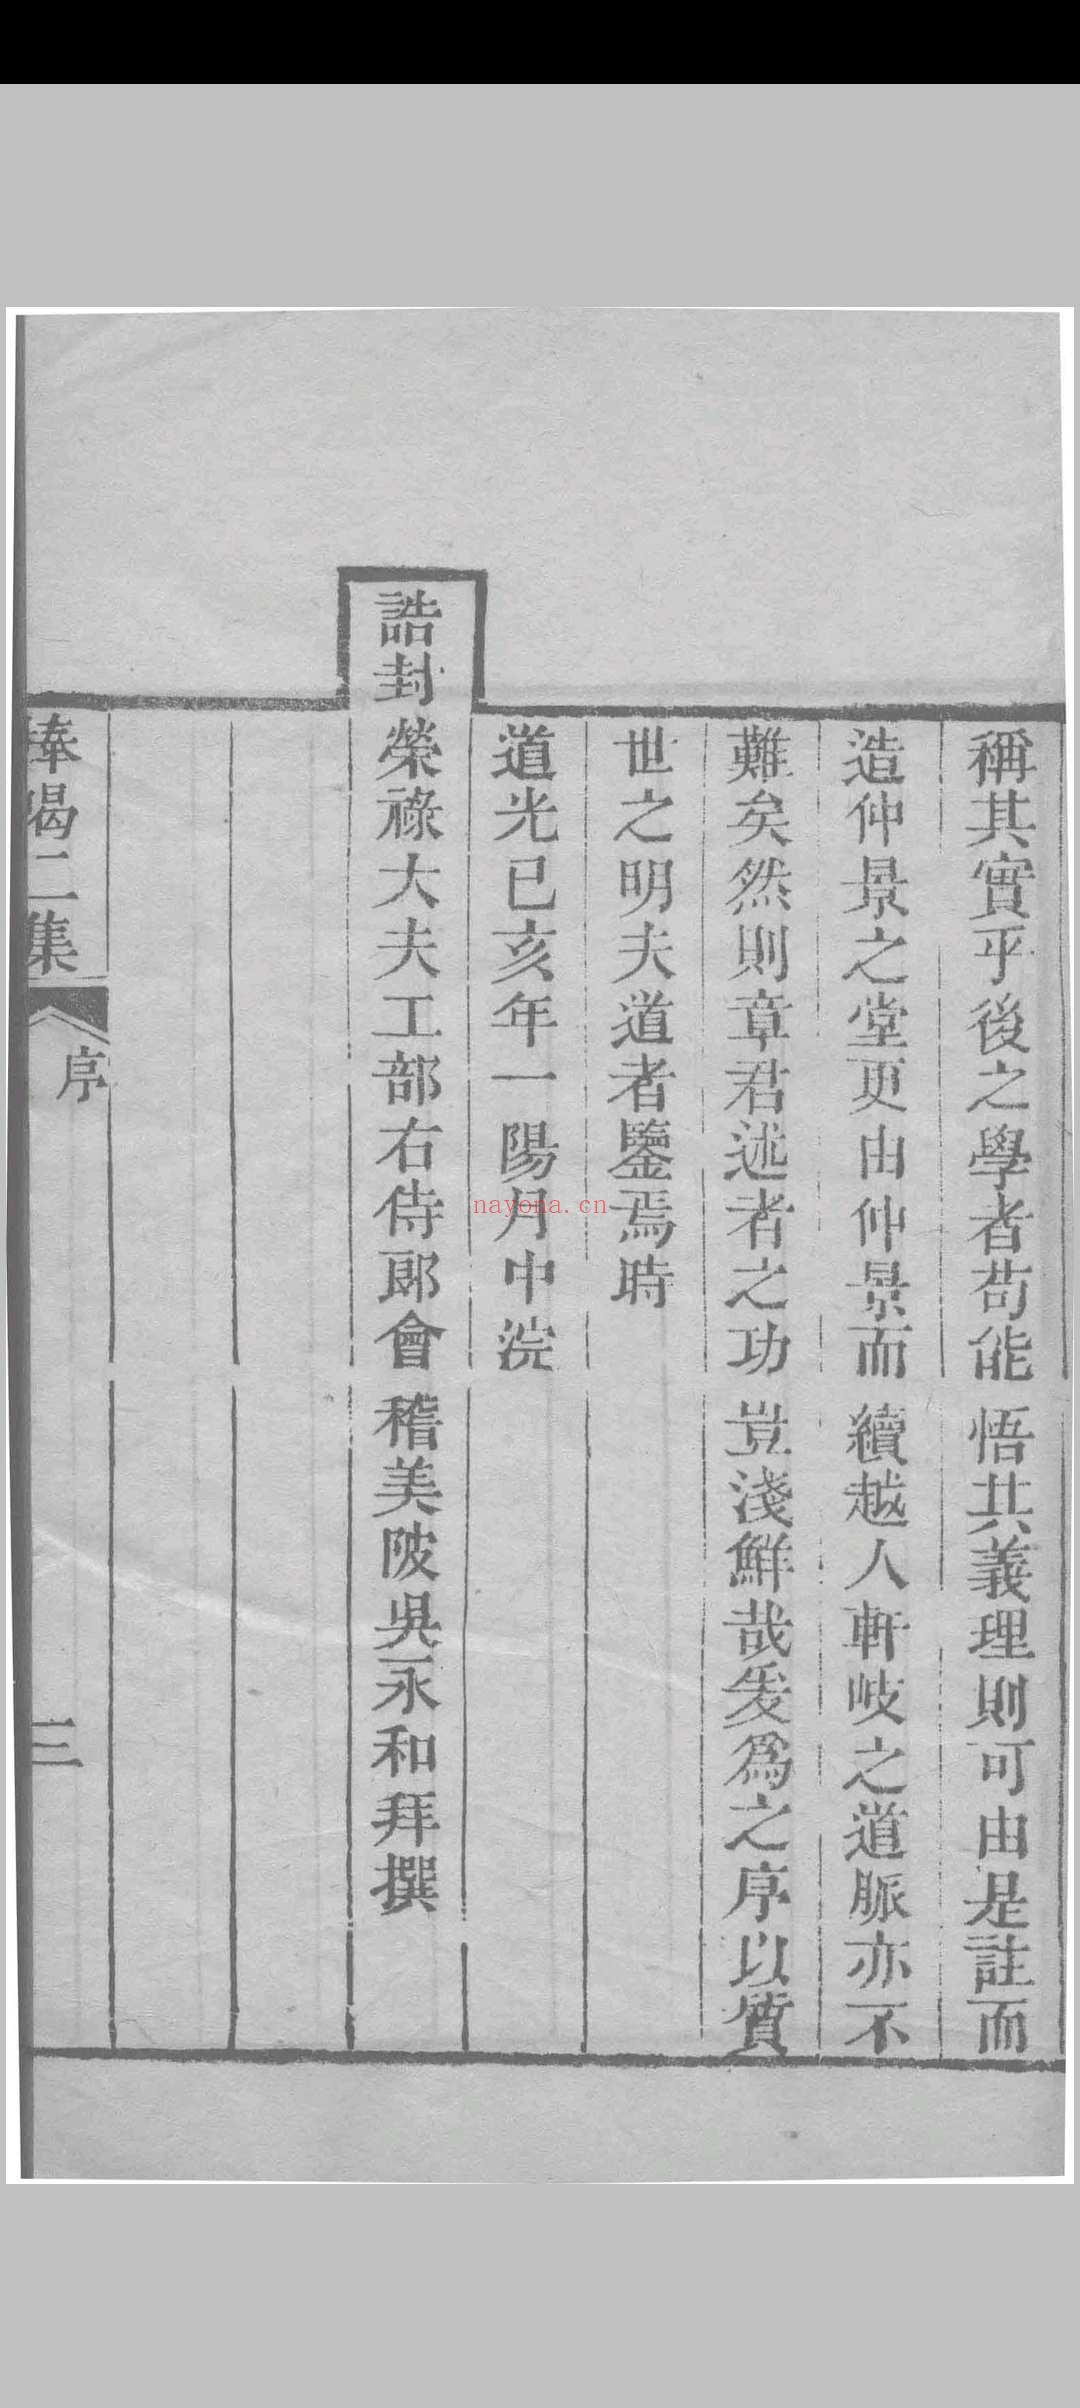 稱其實乎後之學者苟能悟其義理則可由是註而
造仲景之堂更由仲景而續越人軒岐之道脈亦不
難矣然則章君述者之功豈淺鮮哉爰為之序以質
世之明夫道者鑒焉時
道光己亥年一陽月中浣
誥封榮祿大夫工部右侍郎會稽美陂吳永和拜撰
捧喝二集
序
三
nayona.cn